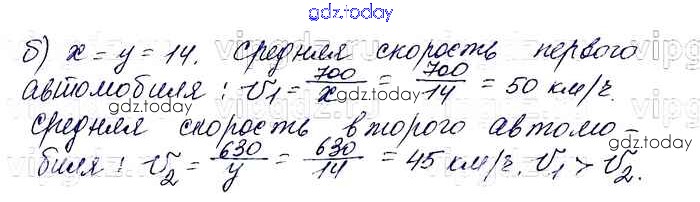 gdz.today
б) x = y = 14. Средняя скорость первого
автомобиля : v₁ = 700/x = 700/14 = 50 км/ч.
gdz.today gdz.today
средняя скорость второго автомо-
gdz.today
биля : v₂ = 630/y = 630/14 = 45 км/ч. v₁ > v₂.
gdz.today